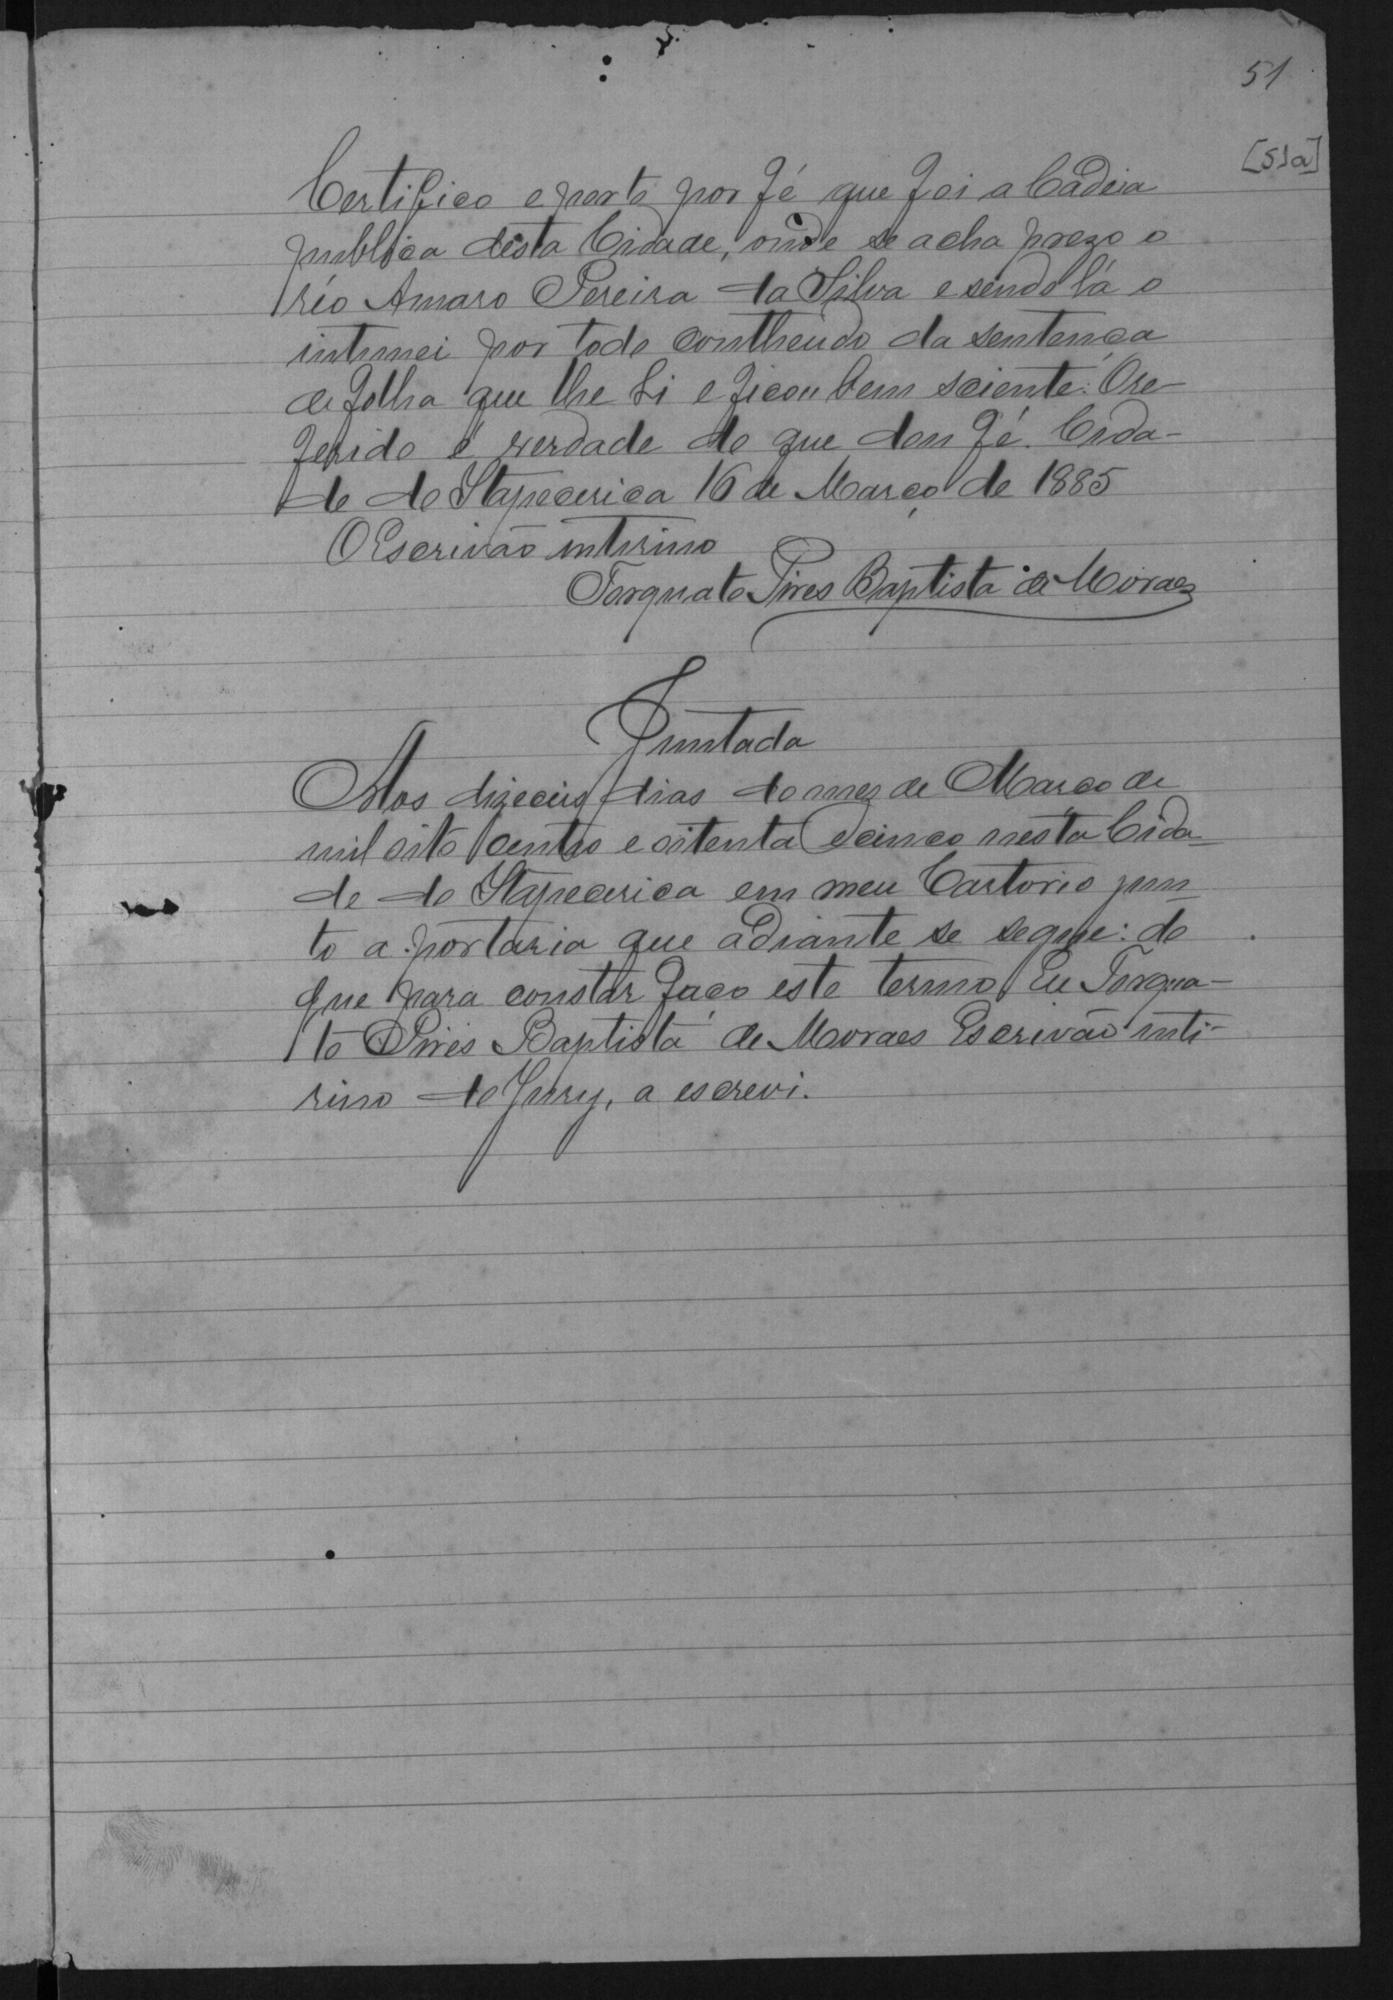 51
[51a]
Certifico e porto por fé que foi a Cadeia
publica desta Cidade, onde se acha prezo o
réo Amaro Pereira da Silva e sendo lá o
intimei por todo contheudo da sentença
de folha que lhe li e ficou bem sciente. O re-
ferido é verdade do que dou fé. Cida-
de do Itapecerica 16 de Março de 1885
O Escrivão intirino
Torquato Pires Baptista de Moraes
Juntada
Aos dizeceis dias do mez de Março de
mil oito centos e oitenta e cinco nesta Cida-
de do Itapecerica em meu Cartorio jun-
to a portaria que adiante se segue: do
que para constar faço este termo, Eu Torqua-
to Pires Baptista de Moraes Escrivão inti-
rino do Jury, a escrevi.